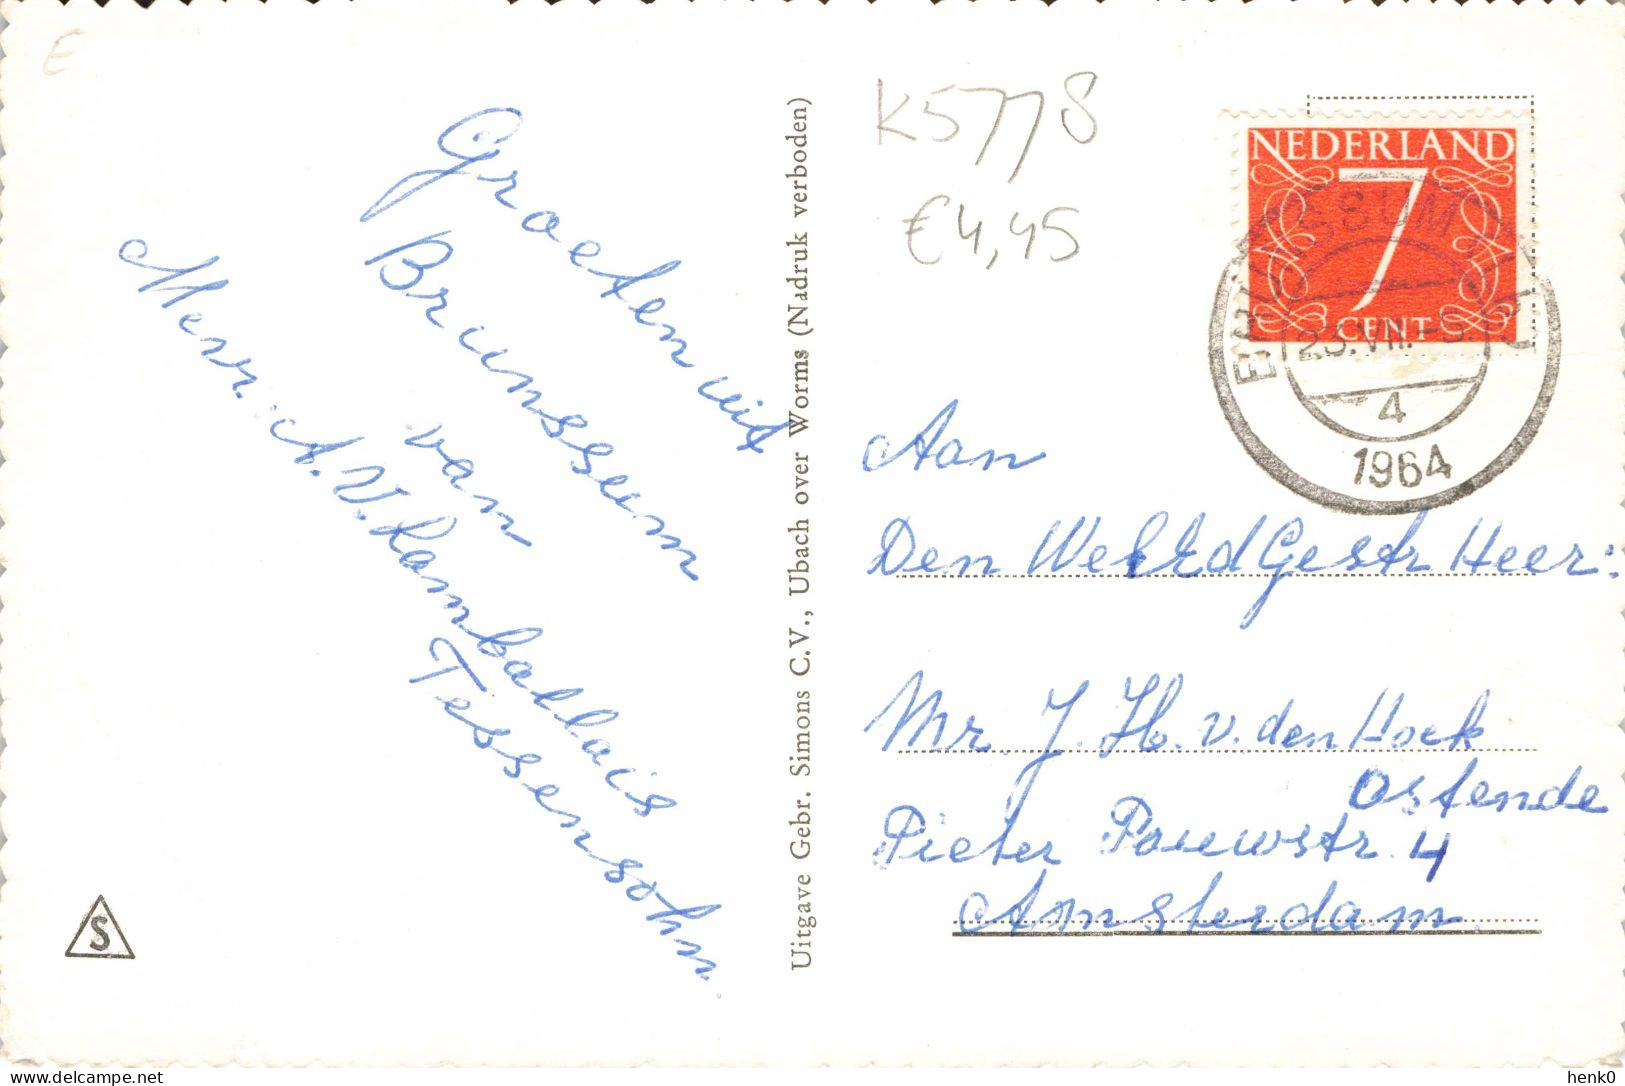 E
Groeten uit
Brunssum
van
Mevr. A. V. Lamballais
Tessensohn
S
Uitgave Gebr. Simons C.V., Ubach over Worms (Nadruk verboden)
K5778
€4,45
NEDERLAND
7
CENT
BRUNSSUM
23.VII.-5
4
1964
Aan
Den WelEdGestr Heer:
Mr. J. H. v. den Hoek
Ostende
Pieter Pauwstr. 4
Amsterdam.
delcampe.net
henk0